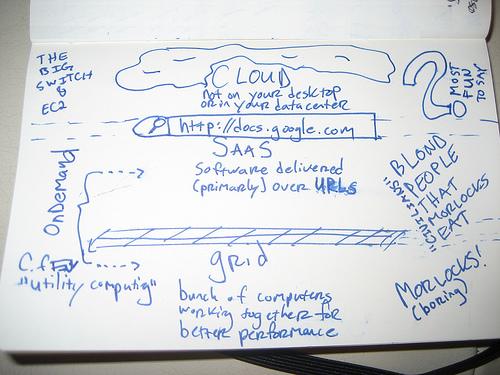 THE
BIG
SWITCH
&
EC2
CLOUD
not on your desktop
or in your data center
?
MOST
FUN
TO SAY
http://docs.google.com
SAAS
Software delivered
(primarily) over URLs
OnDemand
BLOND
PEOPLE
THAT
MORLOCKS
EAT
grid
C.f.
"utility computing"
bunch of computers
working together for
better performance
MORLOCKS!
(boring)